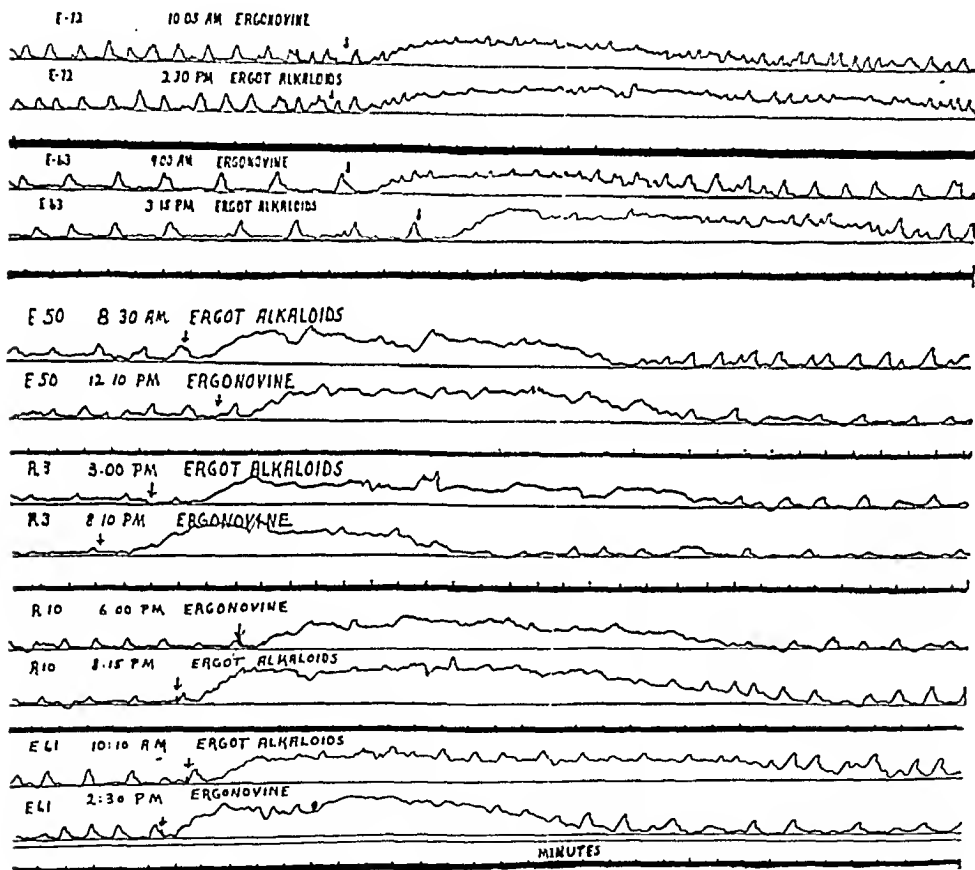 E-72 10 05 AM ERGONOVINE
E-72 2 30 PM ERGOT ALKALOIDS
E-63 9 03 AM ERGONOVINE
E 63 3 15 PM ERGOT ALKALOIDS
E 50 8 30 AM ERGOT ALKALOIDS
E 50 12 10 PM ERGONOVINE
R 3 3.00 PM ERGOT ALKALOIDS
R 3 8 10 PM ERGONOVINE
R 10 6 00 PM ERGONOVINE
R 10 8.15 PM ERGOT ALKALOIDS
E 61 10:10 AM ERGOT ALKALOIDS
E 61 2:30 PM ERGONOVINE
MINUTES